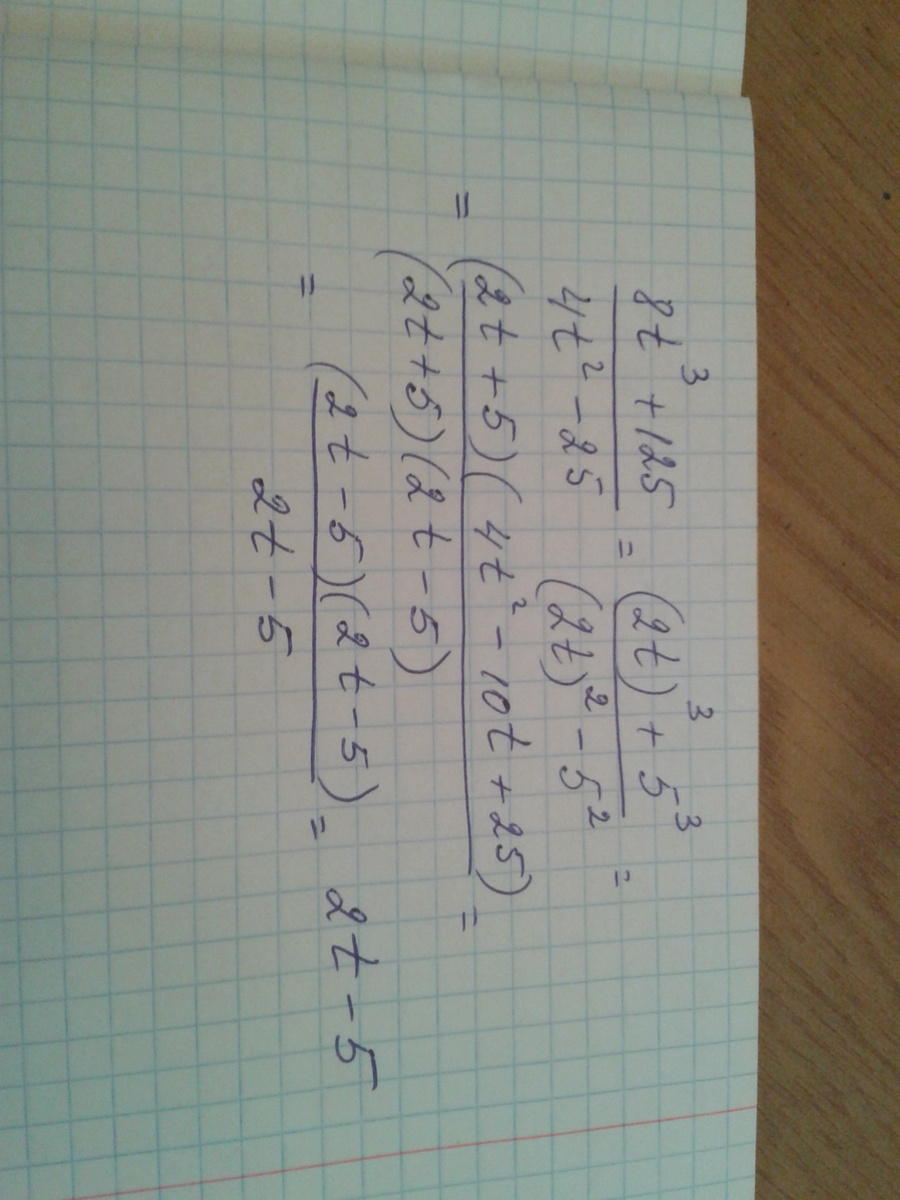 8t³ + 125 / 4t² - 25 = (2t)³ + 5³ / (2t)² - 5² =
= (2t + 5)(4t² - 10t + 25) / (2t + 5)(2t - 5) =
= (2t - 5)(2t - 5) / 2t - 5 = 2t - 5